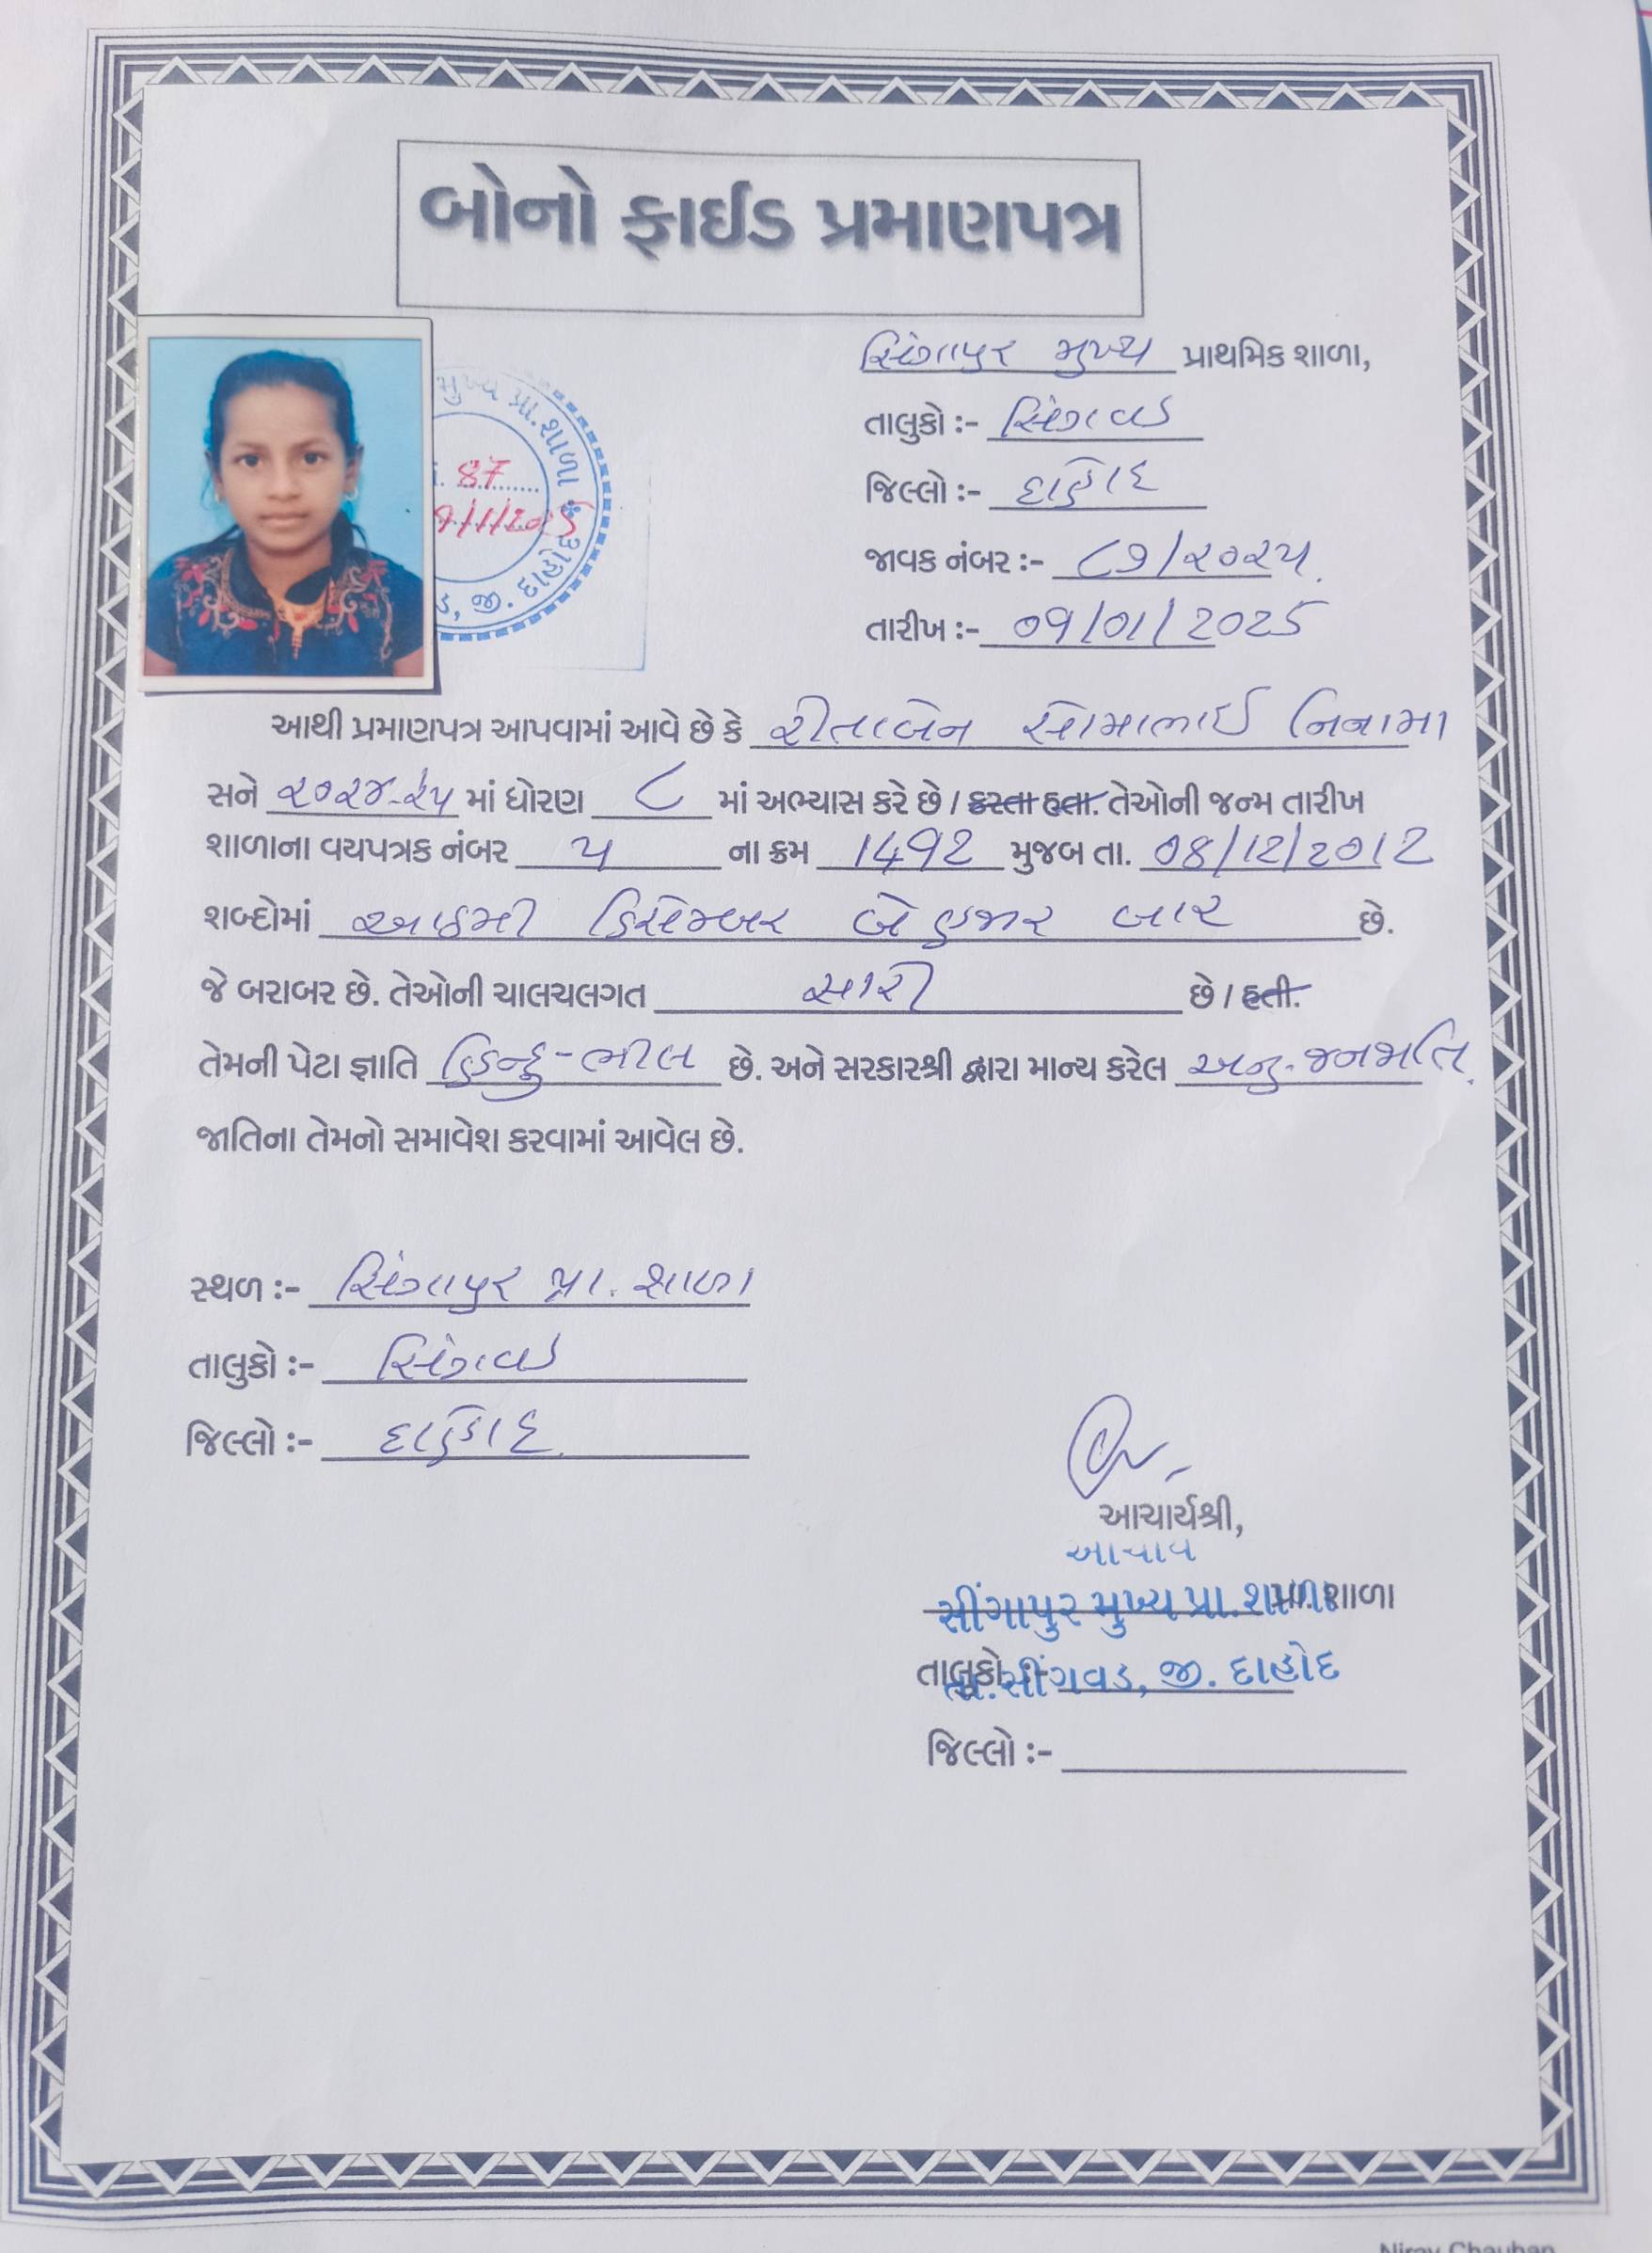 બોનો ફાઈડ પ્રમાણપત્ર
સિંગાપુર મુખ્ય પ્રાથમિક શાળા,
તાલુકો :- સિંગવડ
જિલ્લો :- દાહોદ
જાવક નંબર :- ૮૭/૨૦૨૫.
તારીખ :- ૦૧/૦૧/૨૦૨૫
મુખ્ય પ્રા. શાળા
87
૧/૧/૨૦૨૫
ડ, જી. દાહોદ
આથી પ્રમાણપત્ર આપવામાં આવે છે કે રીતાબેન સોમાભાઈ નિનામા
સને ૨૦૨૪-૨૫ માં ધોરણ ૮ માં અભ્યાસ કરે છે / કરતા હતા. તેઓની જન્મ તારીખ
શાળાના વયપત્રક નંબર ૫ ના ક્રમ 1492 મુજબ તા. 08/12/2012
શબ્દોમાં આઠમી ડિસેમ્બર બે હજાર બાર છે.
જે બરાબર છે. તેઓની ચાલચલગત સારી છે / હતી.
તેમની પેટા જ્ઞાતિ હિન્દુ-ભીલ છે. અને સરકારશ્રી દ્વારા માન્ય કરેલ અનુ.જનજાતિ.
જાતિના તેમનો સમાવેશ કરવામાં આવેલ છે.
સ્થળ :- સિંગાપુર પ્રા. શાળા
તાલુકો :- સિંગવડ
જિલ્લો :- દાહોદ.
આચાર્યશ્રી,
સીંગાપુર મુખ્ય પ્રા. શાળા શાળા
તાલુકો :-
તા. સીંગવડ, જી. દાહોદ
જિલ્લો :-
Nirav Chauhan